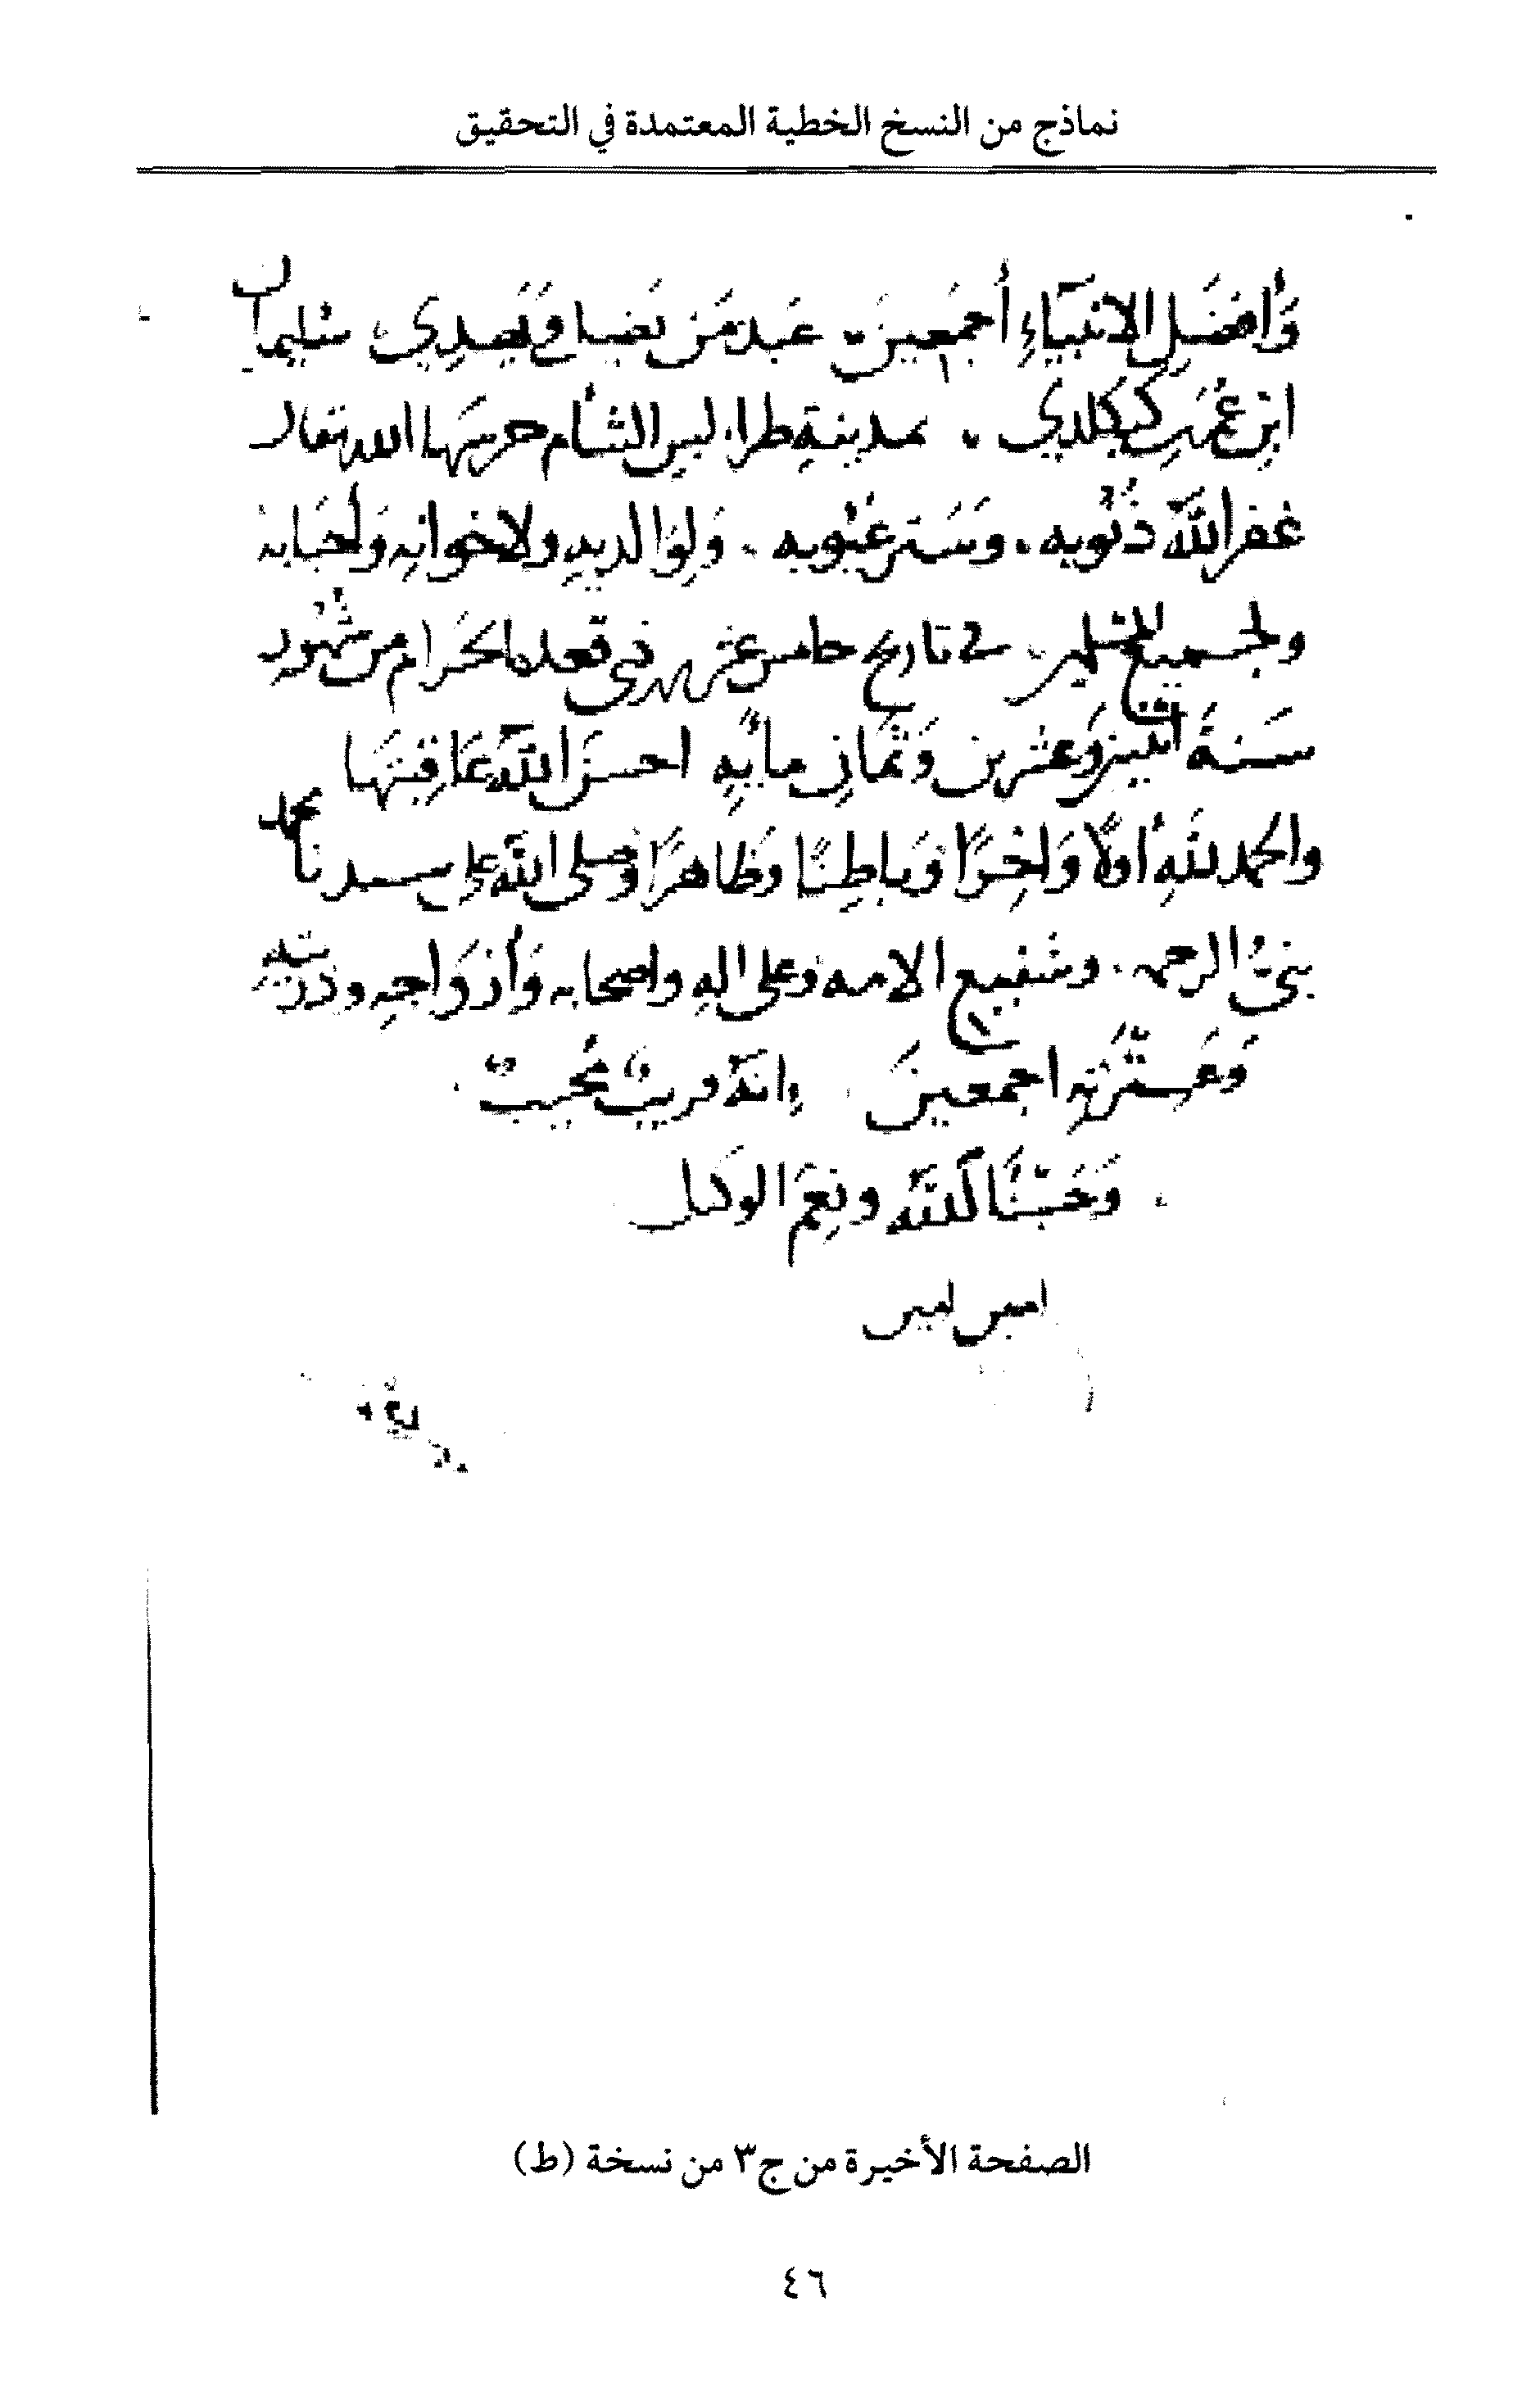 نماذج من النسخ الخطية المعتمدة في التحقيق
وَأَفضَل الانبيَاءِ أَجمَعين عَبد مَن
سُليمان
ابن عُمَر كيكلدي . بمدينة طرابلس الشام حرسَها الله تعالى
غفر اللهُ ذُنُوبه . وَسَتر عُيُوبه . وَلِوَالديهِ ولاخوانِه وَلاحبَابه
ولجميع المسلمين في تاريخ خامس عشر ذي قعده الحَرام من شُهُور
سَنةَ اثنين وَعشرين وَثمَان مايهِ احسَن اللهُ عَاقِبتهَا
والحمد للهِ أولاً وَاخِرًا وَبَاطِنًا وَظَاهرًا وَصلى اللهُ على سيدنا محمد
نبيّ الرحمه . وشفيع الامه وعلى الهِ واصحابه وَأزوَاجِه وذريته
وَعَستَرتِه اجمعينَ . إنهُ قريبٌ مُجيبٌ .
. وَحَسْبُنَا اللهُ ونِعمَ الوَكيل
امين امين
الصفحة الأخيرة من ج٣ من نسخة (ط)
٤٦